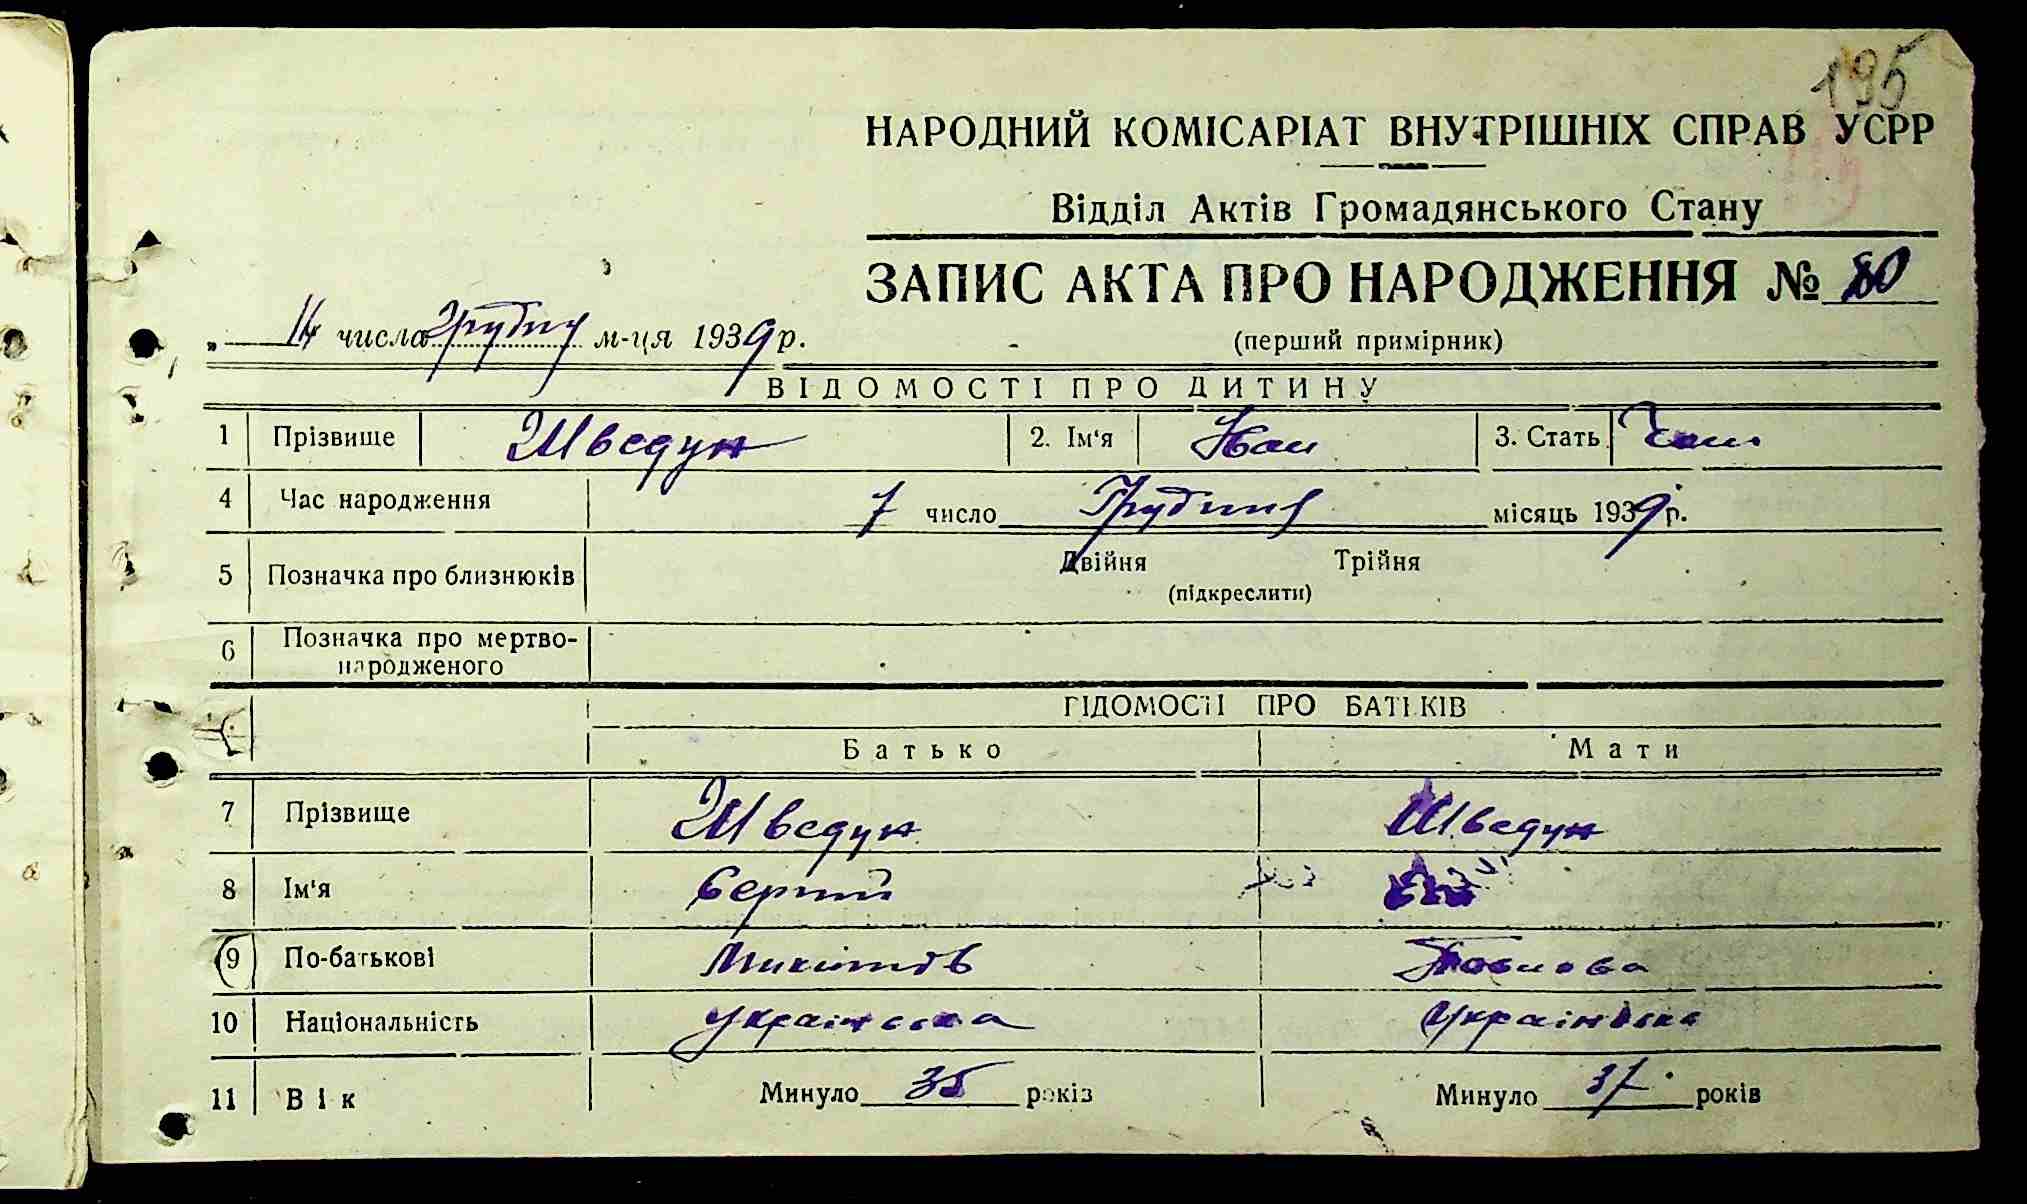 195
НАРОДНИЙ КОМІСАРІАТ ВНУТРІШНІХ СПРАВ УСРР
Відділ Актів Громадянського Стану
ЗАПИС АКТА ПРО НАРОДЖЕННЯ № 80
„ 14 числа грудня м-ця 1939 р.
(перший примірник)
ВІДОМОСТІ ПРО ДИТИНУ
1 Прізвище Шведун 2. Ім'я Іван 3. Стать Чол.
4 Час народження 7 число Грудня місяць 1939 р.
5 Позначка про близнюків Двійня Трійня
(підкреслити)
6 Позначка про мертво-
народженого
ВІДОМОСТІ ПРО БАТЬКІВ
Батько Мати
7 Прізвище Шведун Шведун
8 Ім'я Сергій
9 По-батькові Микитов
10 Національність українська Українська
11 Вік Минуло 35 років Минуло 37 років